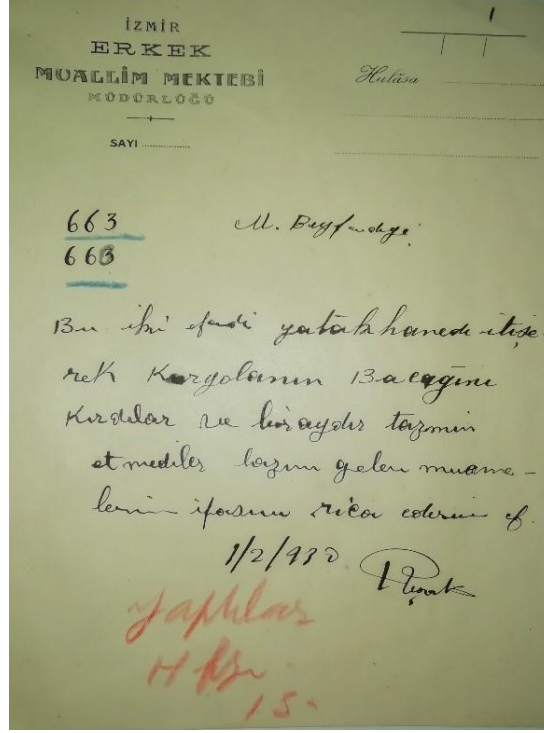 1
İZMİR
ERKEK
MUALLİM MEKTEBİ
MÜDÜRLÜĞÜ
Hulâsa
SAYI
663
M. Beyfendiye
663
Bu iki efendi yatakhanede itişe-
rek Karyolanın Bacağını
Kırdılar ve bir aydır tazmin
etmediler lazım gelen muame-
lenin ifasını rica ederim ef.
1/2/930
Yaptılar